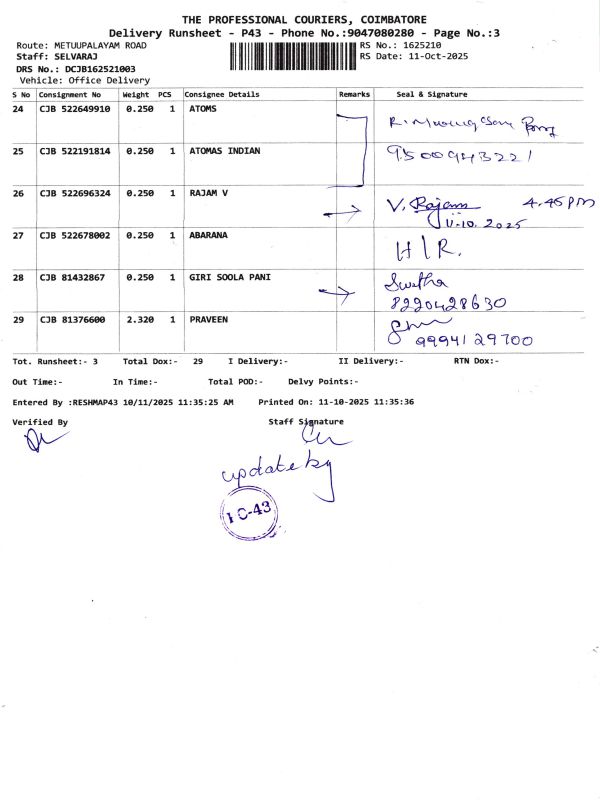 THE PROFESSIONAL COURIERS, COIMBATORE
Delivery Runsheet - P43 - Phone No.:9047080280 - Page No.:3
Route: METUUPALAYAM ROAD RS No.: 1625210
Staff: SELVARAJ RS Date: 11-Oct-2025
DRS No.: DCJB162521003
Vehicle: Office Delivery
S No Consignment No Weight PCS Consignee Details Remarks Seal & Signature
24 CJB 522649910 0.250 1 ATOMS
25 CJB 522191814 0.250 1 ATOMAS INDIAN 9500943221
26 CJB 522696324 0.250 1 RAJAM V V. Rajam 4.45 PM
11.10.2025
27 CJB 522678002 0.250 1 ABARANA H/R.
28 CJB 81432867 0.250 1 GIRI SOOLA PANI Swetha
8220428630
29 CJB 81376600 2.320 1 PRAVEEN
9994129700
Tot. Runsheet:- 3 Total Dox:- 29 I Delivery:- II Delivery:- RTN Dox:-
Out Time:- In Time:- Total POD:- Delvy Points:-
Entered By :RESHMAP43 10/11/2025 11:35:25 AM Printed On: 11-10-2025 11:35:36
Verified By Staff Signature
update by